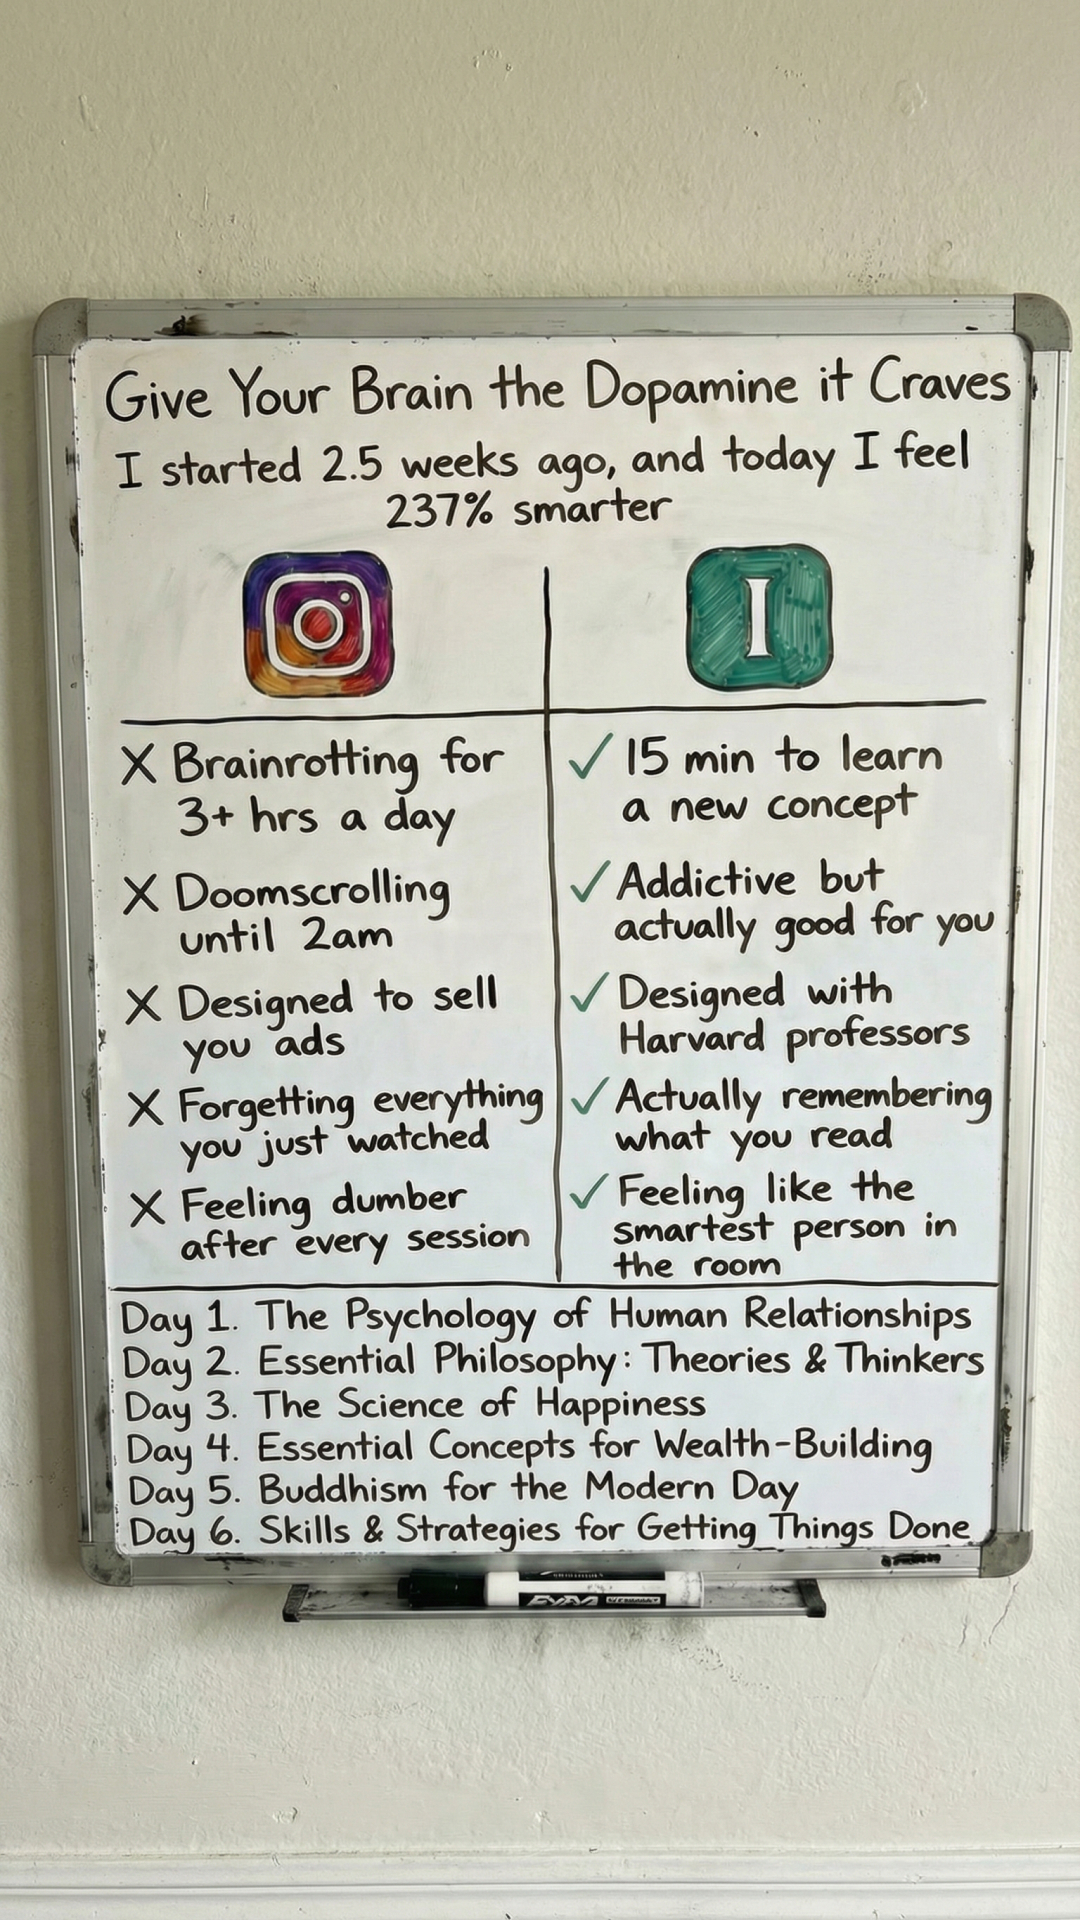 Give Your Brain the Dopamine it Craves
I started 2.5 weeks ago, and today I feel
237% smarter
I
X Brainrotting for
3+ hrs a day
X Doomscrolling
until 2am
X Designed to sell
you ads
X Forgetting everything
you just watched
X Feeling dumber
after every session
✓ 15 min to learn
a new concept
✓ Addictive but
actually good for you
✓ Designed with
Harvard professors
✓ Actually remembering
what you read
✓ Feeling like the
smartest person in
the room
Day 1. The Psychology of Human Relationships
Day 2. Essential Philosophy: Theories & Thinkers
Day 3. The Science of Happiness
Day 4. Essential Concepts for Wealth-Building
Day 5. Buddhism for the Modern Day
Day 6. Skills & Strategies for Getting Things Done